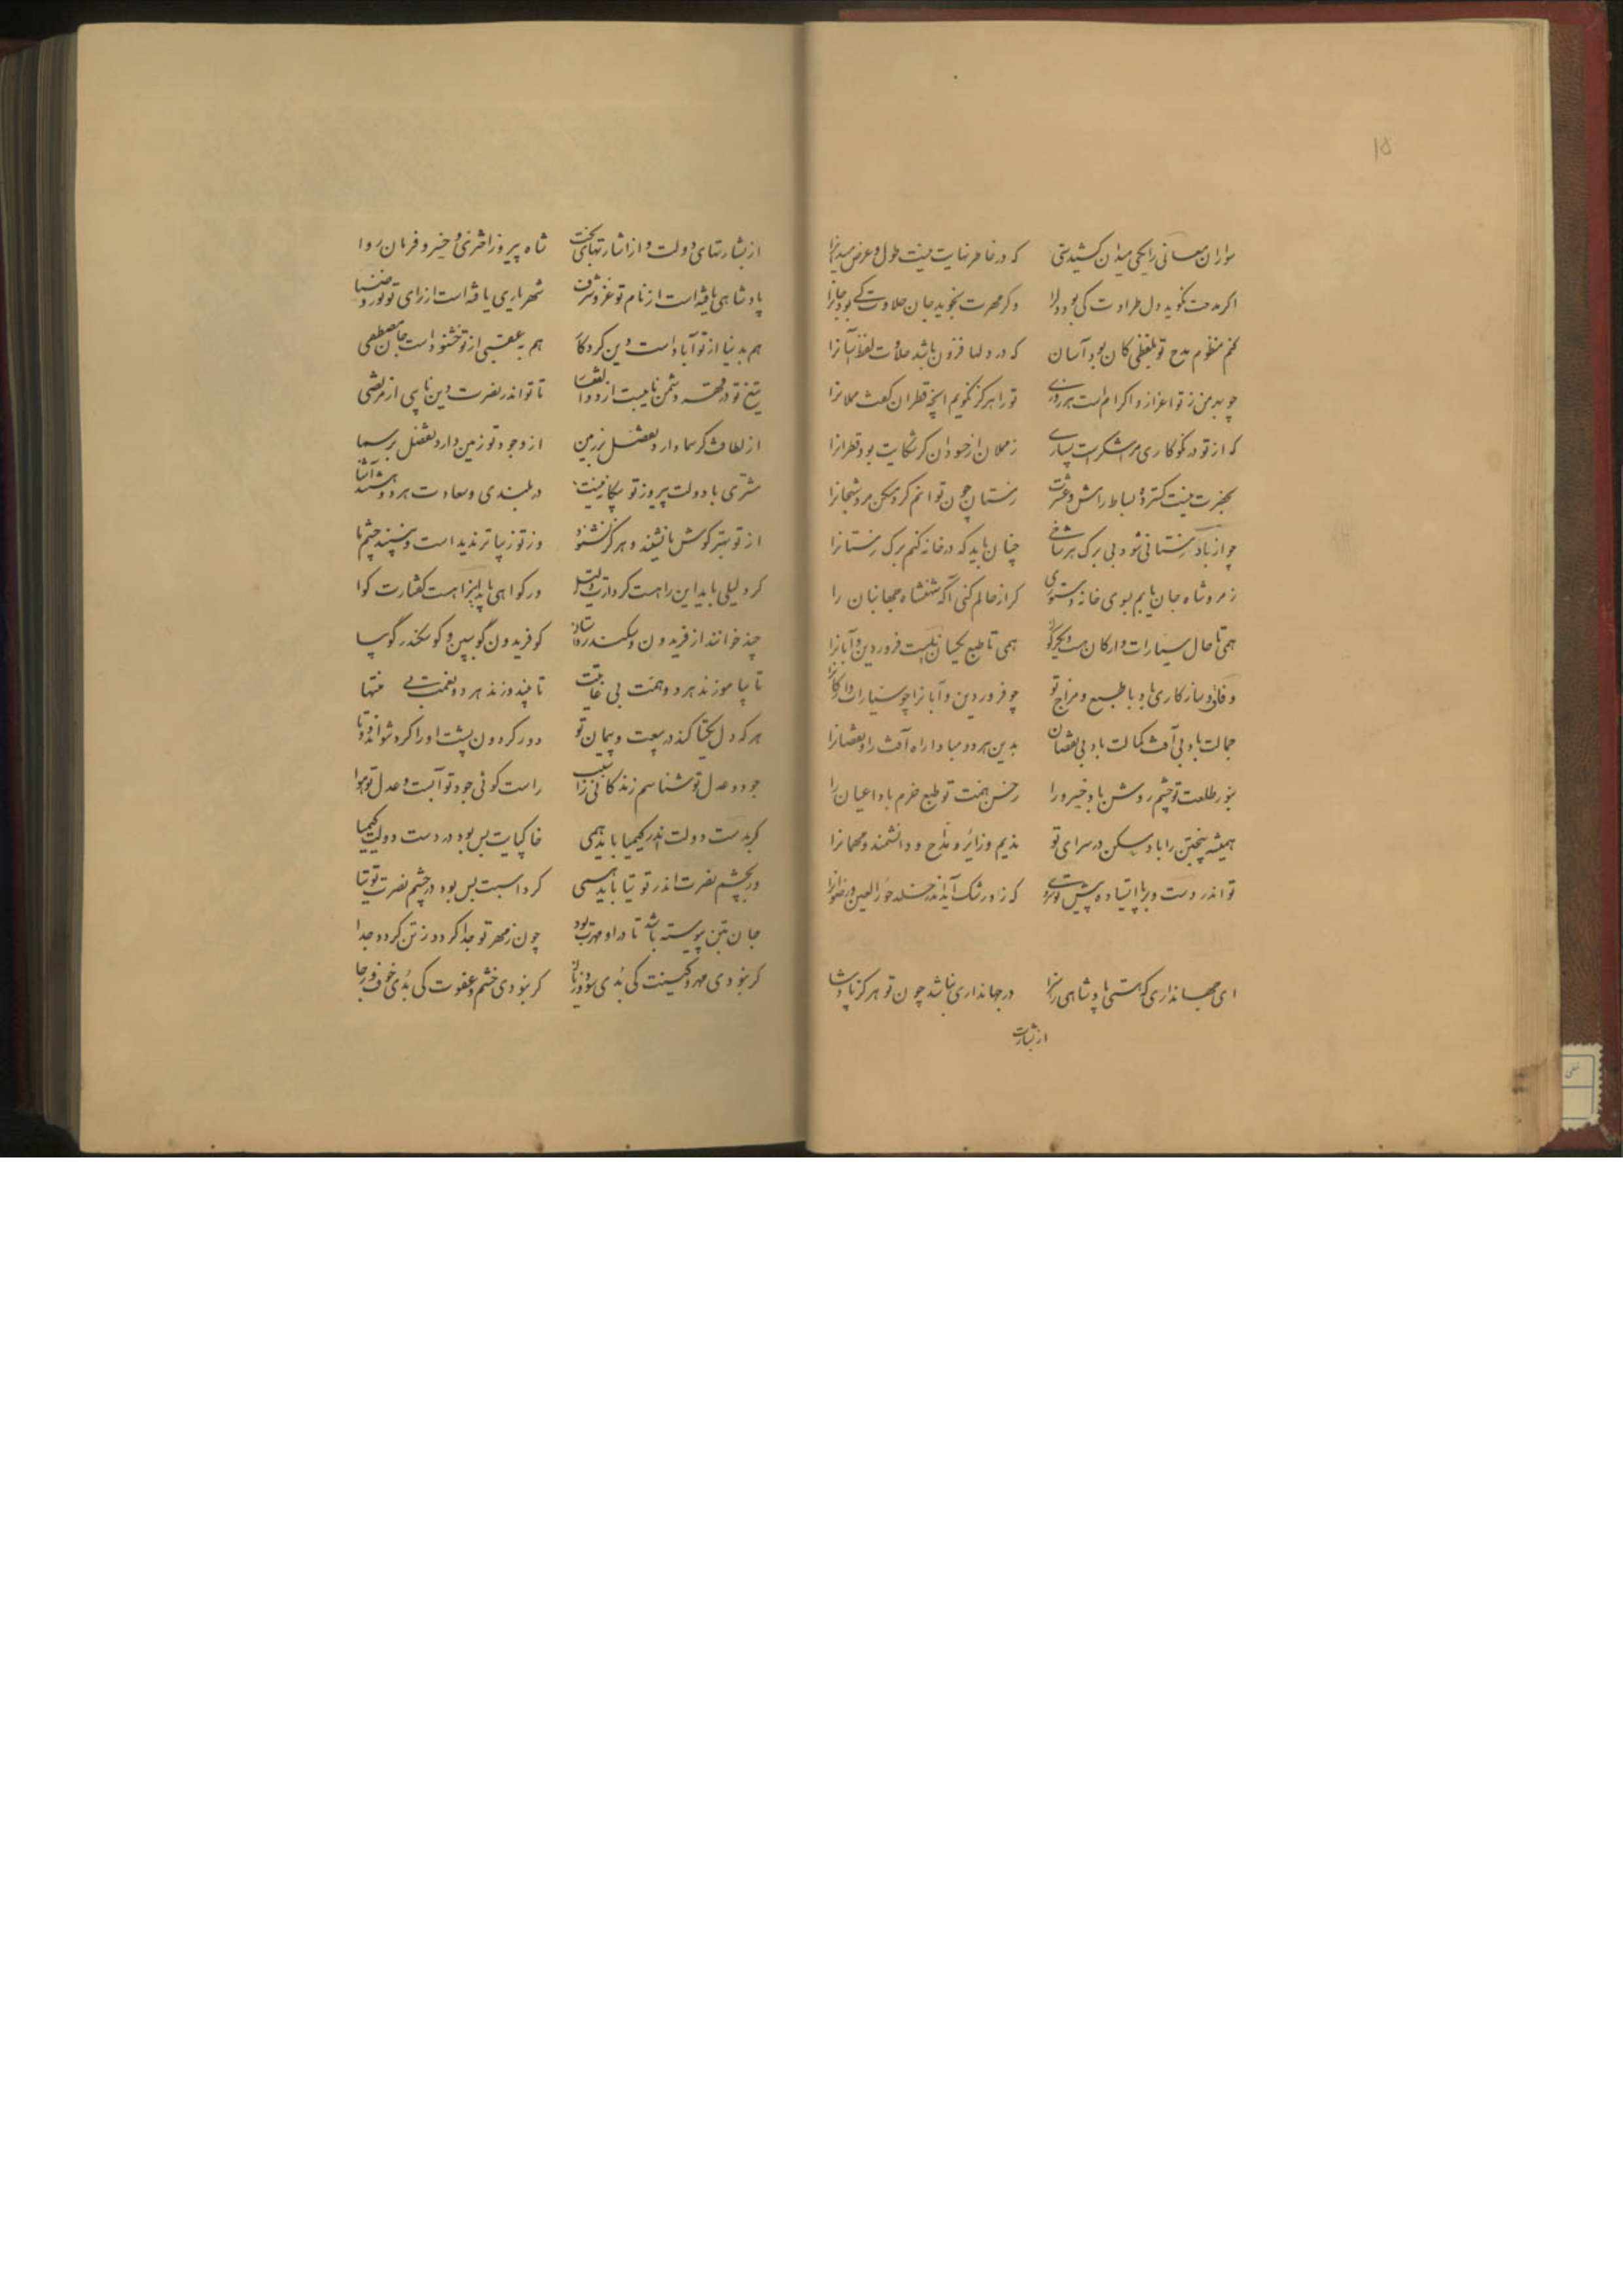 ۱۵
سواران معانی را یکی میدان کشیدستی که در خاطر نهایت نیست طول و عرض میدانرا
اکر مدحت نکوید دل طراوت کی بود دلرا وکر مهرت نجوید جان حلاوت کی بود جانرا
کنم منظوم مدح تو بلفظی کان بود آسان که در دلها فزون باشد حلاوت لفظ آسانرا
چو بر من ز تو اعزاز و اکرام است هر روزی تو را هرکز نکویم آنچه قطران کفت مملانرا
که از تو در نکوکاری مرا شکرست بسیاری ز مملان از خود آن کر شکایت بود قطرانرا
بحضرت نیست کسترده بساط رامش و عشرت زمستان چون توانم کرد مسکن مرو شهجانرا
چو از باد زمستانی شود بی برک هر شاخی چنان باید که در خانه کنم برک زمستانرا
ز مرو شاه جان یابم بسوی خانه دستوری کر از حالم کنی آکه شهنشاه جهانبان را
همی تا حال سیارات و ارکان نیست یکدیکر همی تا طبع یکسان نیست فروردین و آبانرا
وفاق و سازکاری باد با طبع و مزاج تو چو فروردین و آبانرا چو سیارات و ارکانرا
جمالت باد بی آفت کمالت باد بی نقصان بدین هر دو مبادا راه آفت را و نقصانرا
بنور طلعت تو چشم روشن باد خسرو را ز حسن همت تو طبع خرم باد اعیان را
همیشه پنجتن را باد مسکن در سرای تو ندیم و زائر و مداح و دانشمند و مهمانرا
تو اندر دست و بر پا ایستاده پیش تو سروی که زو رشک آید اندر خلد حورالعین و رضوانرا
ای جهانداری که هستی پادشاهی را سزا در جهانداری نباشد چون تو هرکز پادشا
از بشارت
از بشارتهای دولت وز اشارتهای بخت شاه پیروز اختری و خسرو فرمان روا
پادشاهی یافته است از نام تو عز و شرف شهریاری یافته است از رای تو نور و ضیا
هم بدنیا از تو آباد است دین کردکار هم بعقبی از تو خشنود است جان مصطفی
تیغ تو در قهر دشمن نایبست از ذوالفقار تا تو اندر نصرت دین نایبی از مرتضی
از لطافت کر سما دارد بفضل بر زمین از وجود تو زمین دارد تفضل بر سما
مشتری با دولت پیروز تو بیکانه نیست در بلندی و سعادت هر دو هستند آشنا
از تو بهتر کوش ما نشنید و هرکز نشنود وز تو زیباتر ندید است و نبیند چشم ما
کر دلیلی باید این را هست کردارت دلیل ور کواهی باید آنرا هست کفتارت کوا
چند خوانند از فریدون و سکندر داستان کو فریدون کو ببین و کو سکندر کو بیا
تا بیاموزند هر دو همت بی غایت تا بیندوزند هر دو نعمت بی منتها
هر که دل یکتا کند در بیعت و پیمان تو دور کردون پشت او را کرد نتواند دو تا
جود و عدل تو شناسم زندکانی را سبب راست کوئی جود تو آبست و عدل تو هوا
کر بدست دولت اندر کیمیا باید همی خاکپایت بس بود در دست دولت کیمیا
ور بچشم نصرت اندر توتیا باید همی کرد اسبت بس بود در چشم نصرت توتیا
جان بتن پیوسته باشد تا در او مهرت بود چون ز مهر تو جدا کردد ز تن کردد جدا
کر نبودی مهر و کینت کی بدی سود و زیان کر نبودی خشم و عفوت کی بدی خوف و رجا